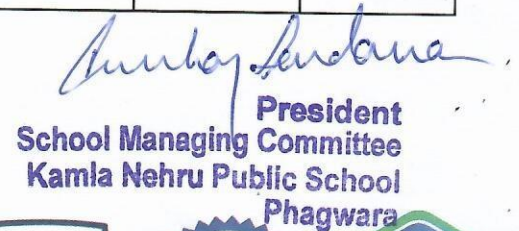 President
School Managing Committee
Kamla Nehru Public School
Phagwara